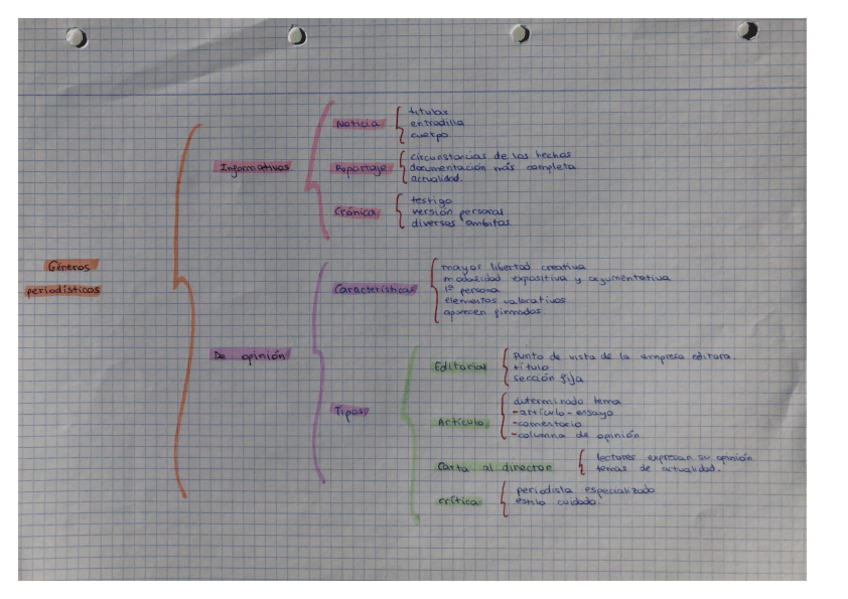 Géneros
periodísticos
Informativos
Noticia
titular
entradilla
cuerpo
Reportaje
circunstancias de los hechos
documentación más completa
actualidad.
Crónica
testigo
versión personal
diversos ámbitos
De opinión
Características
mayor libertad creativa
modalidad expositiva y argumentativa
1ª persona
elementos valorativos
aparecen firmados
Tipos
Editorial
Punto de vista de la empresa editora.
título
sección fija
Artículo
determinado tema
-artículo-ensayo
-comentario
-columna de opinión
Carta al director
lectores expresan su opinión
temas de actualidad.
crítica
periodista especializado
estilo cuidado.